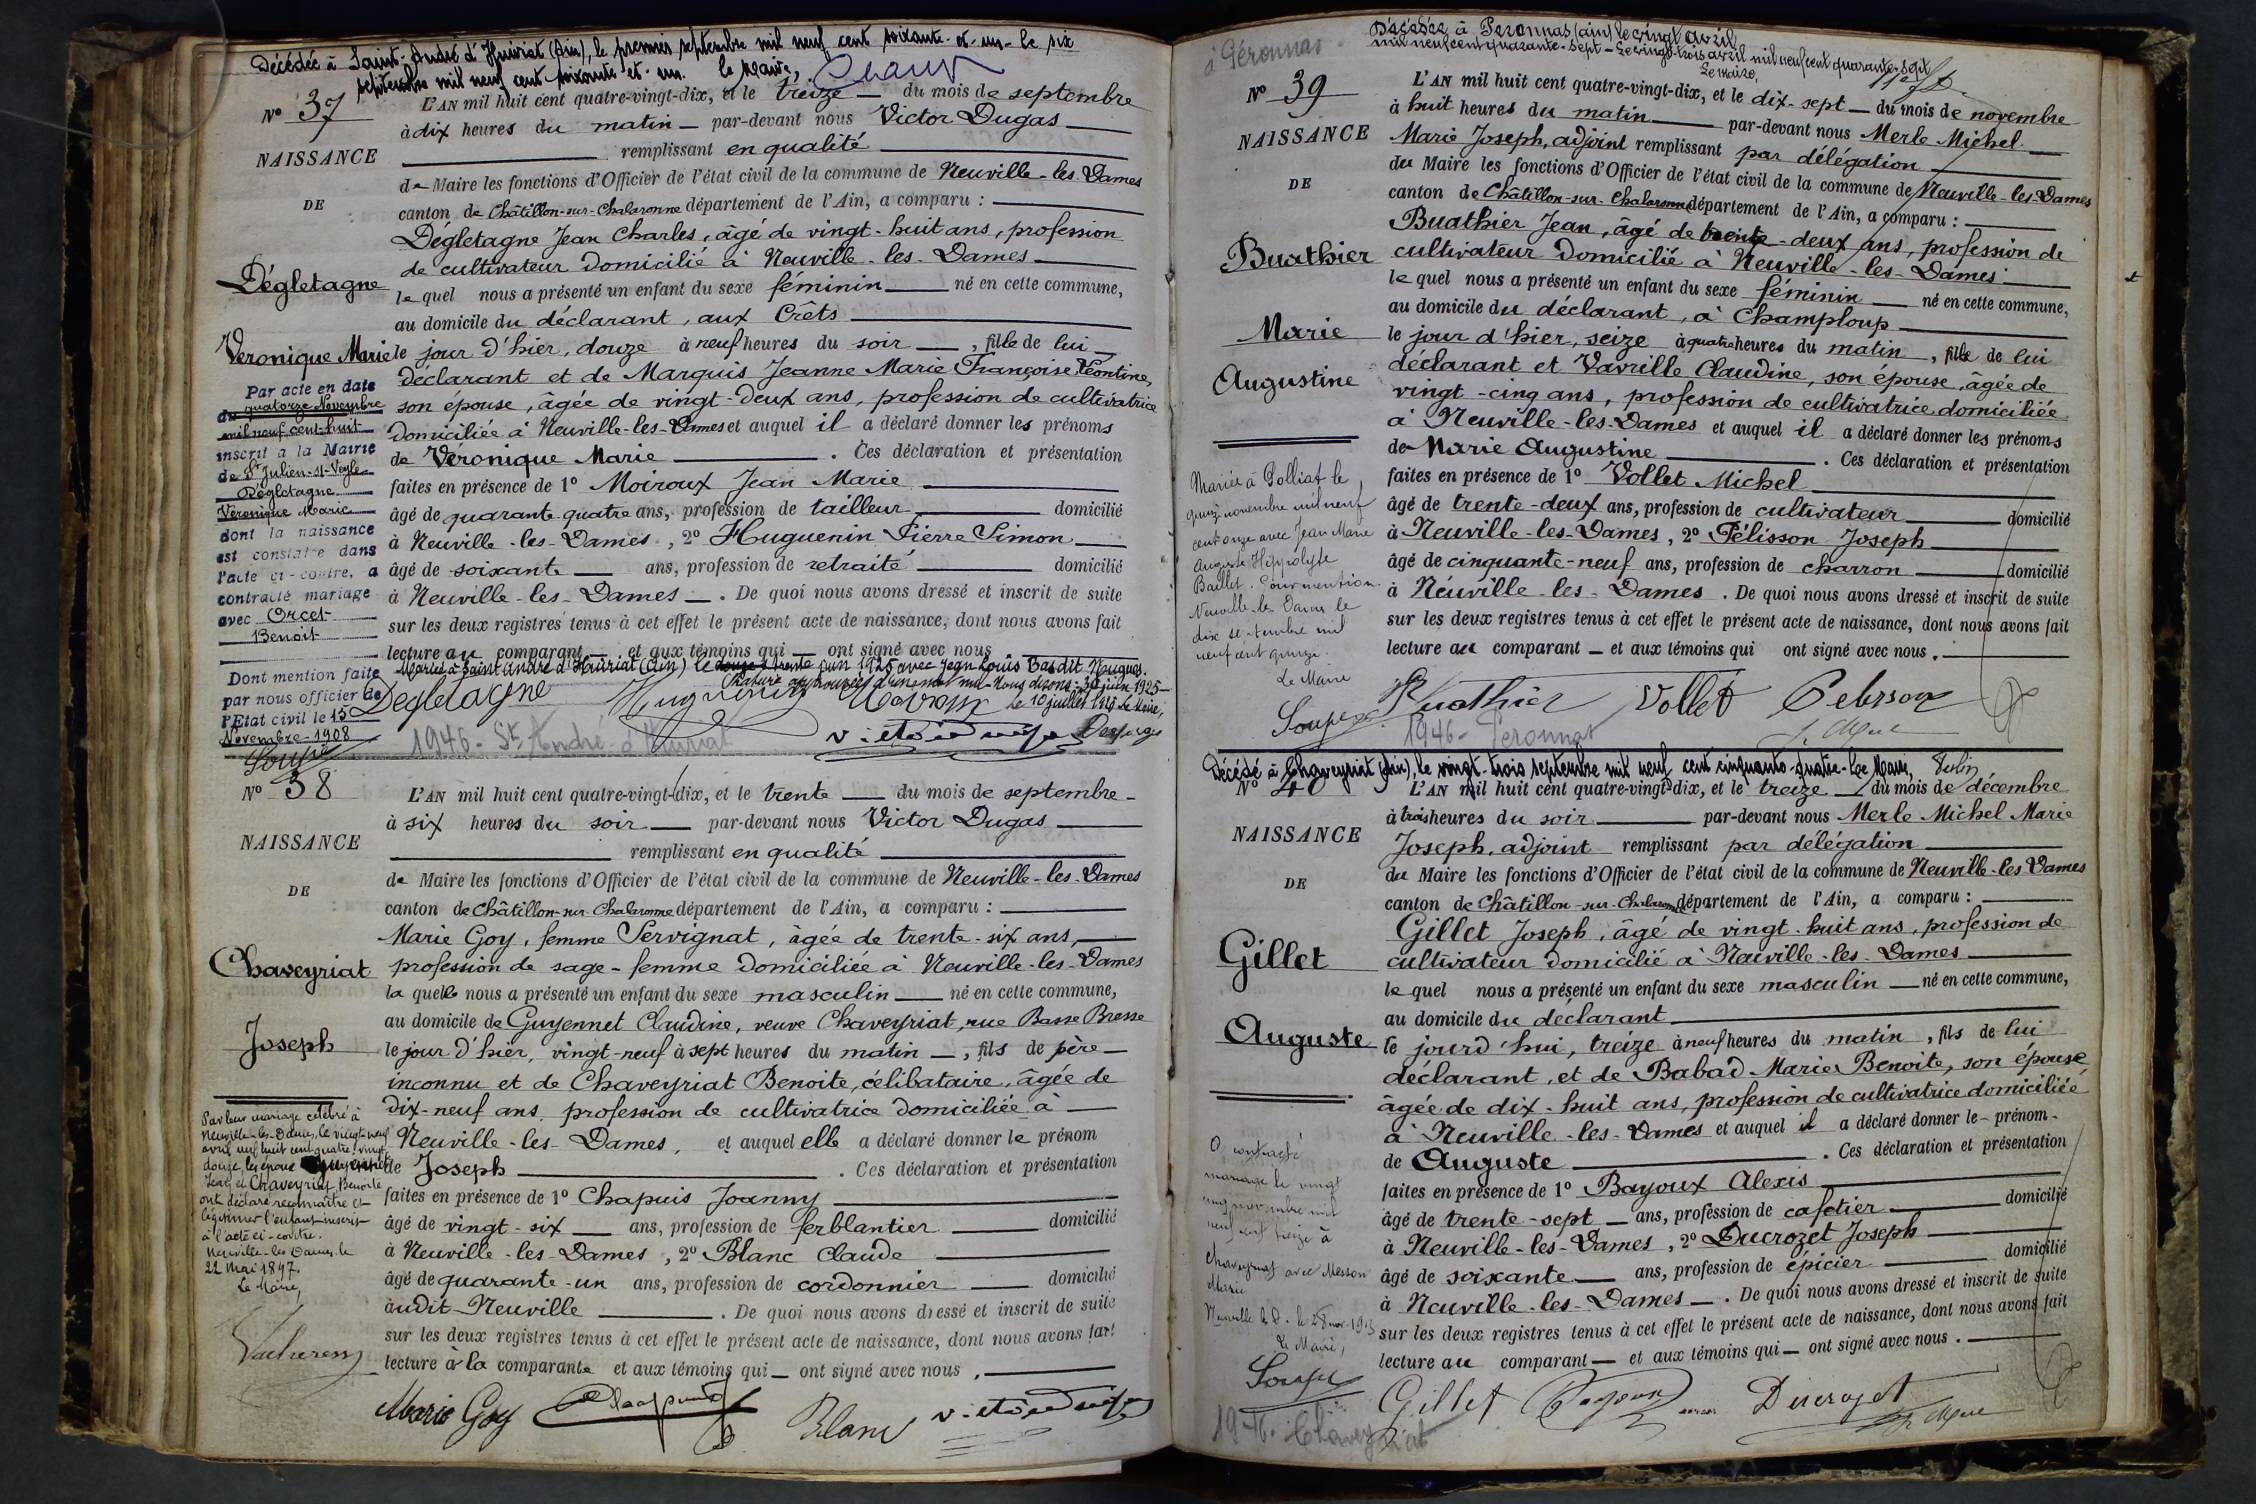 Décédée à Saint-André d'Huiriat (Ain), le premier septembre mil neuf cent soixante-et-un - le six
septembre mil neuf cent soixante-et-un. le Maire,
N° 37
NAISSANCE
DE
Dégletagne
Veronique Marie
Par acte en date
du quatorze Novembre
mil neuf cent huit
inscrit à la Mairie
de St Julien-s-Veyle
Dégletagne
Véronique Marie
dont la naissance
est constatée dans
l'acte ci-contre, a
contracté mariage
avec Orcet
Benoit
Dont mention faite
par nous officier de
l'Etat civil le 15
Novembre 1908
L'AN mil huit cent quatre-vingt-dix, et le treize du mois de septembre
à dix heures du matin par-devant nous Victor Dugas
remplissant en qualité
de Maire les fonctions d'Officier de l'état civil de la commune de Neuville-les-Dames
canton de Châtillon-sur-Chalaronne département de l'Ain, a comparu :
Dégletagne Jean Charles, âgé de vingt-huit ans, profession
de cultivateur domicilié à Neuville-les-Dames
le quel nous a présenté un enfant du sexe féminin né en cette commune,
au domicile du déclarant, aux Crêts
le jour d'hier, douze à neuf heures du soir, fille de lui
déclarant et de Marquis Jeanne Marie Françoise Léontine,
son épouse, âgée de vingt-deux ans, profession de cultivatrice
domiciliée à Neuville-les-Dames et auquel il a déclaré donner les prénoms
de Véronique Marie. Ces déclaration et présentation
faites en présence de 1° Moiroux Jean Marie
âgé de quarante quatre ans, profession de tailleur domicilié
à Neuville-les-Dames, 2° Huguenin Pierre Simon
âgé de soixante ans, profession de retraité domicilié
à Neuville-les-Dames. De quoi nous avons dressé et inscrit de suite
sur les deux registres tenus à cet effet le présent acte de naissance, dont nous avons fait
lecture au comparant et aux témoins qui ont signé avec nous
Mariée à Saint André d'Huiriat (Ain) le trente juin 1925 avec Jean Louis
30 juin 1925
Le Maire,
Degletagne
1946 - St André d'Huiriat
N° 38
NAISSANCE
DE
Chaveyriat
Joseph
Par leur mariage célébré à
Neuville-les-Dames, le vingt-neuf
avril mil huit cent quatre-vingt
douze, les époux
Jean, et Chaveyriat Benoite
ont déclaré reconnaître et
légitimer l'enfant inscrit
à l'acte ci-contre.
Neuville-les-Dames le
22 Mai 1897.
Le Maire,
L'AN mil huit cent quatre-vingt-dix, et le trente du mois de septembre
à six heures du soir par-devant nous Victor Dugas
remplissant en qualité
de Maire les fonctions d'Officier de l'état civil de la commune de Neuville-les-Dames
canton de Châtillon-sur-Chalaronne département de l'Ain, a comparu :
Marie Goy, femme Servignat, âgée de trente-six ans,
profession de sage-femme domiciliée à Neuville-les-Dames
la quelle nous a présenté un enfant du sexe masculin né en cette commune,
au domicile de Guyennet Claudine, veuve Chaveyriat, rue Basse Bresse
le jour d'hier, vingt-neuf à sept heures du matin, fils de père
inconnu et de Chaveyriat Benoite, célibataire, âgée de
dix-neuf ans, profession de cultivatrice domiciliée à
Neuville-les-Dames, et auquel elle a déclaré donner le prénom
de Joseph. Ces déclaration et présentation
faites en présence de 1° Chapuis Joanny
âgé de vingt-six ans, profession de ferblantier domicilié
à Neuville-les-Dames, 2° Blanc Claude
âgé de quarante-un ans, profession de cordonnier domicilié
audit Neuville. De quoi nous avons dressé et inscrit de suite
sur les deux registres tenus à cet effet le présent acte de naissance, dont nous avons fait
lecture à la comparante et aux témoins qui ont signé avec nous,
Marie Goy
Blanc
à Péronnas
Décédée à Peronnas (ain) le vingt avril
mil neuf cent quarante-sept - le vingt-trois avril mil neuf cent quarante-sept
Le Maire,
N° 39
NAISSANCE
DE
Buathier
Marie
Augustine
Mariée à Polliat le
quinze novembre mil neuf
cent onze avec Jean Marie
Auguste Hippolyte
Baillet. Pour mention
Neuville-les-Dames le
dix septembre mil
neuf cent quinze.
Le Maire
L'AN mil huit cent quatre-vingt-dix, et le dix-sept du mois de novembre
à huit heures du matin par-devant nous Merle Michel
Marie Joseph, adjoint remplissant par délégation
du Maire les fonctions d'Officier de l'état civil de la commune de Neuville-les-Dames
canton de Châtillon-sur-Chalaronne département de l'Ain, a comparu :
Buathier Jean, âgé de trente-deux ans, profession de
cultivateur domicilié à Neuville-les-Dames
le quel nous a présenté un enfant du sexe féminin né en cette commune,
au domicile du déclarant, à Champloup
le jour d'hier, seize à quatre heures du matin, fille de lui
déclarant et Vavrille Claudine, son épouse, âgée de
vingt-cinq ans, profession de cultivatrice domiciliée
à Neuville-les-Dames et auquel il a déclaré donner les prénoms
de Marie Augustine. Ces déclaration et présentation
faites en présence de 1° Vollet Michel
âgé de trente-deux ans, profession de cultivateur domicilié
à Neuville-les-Dames, 2° Pélisson Joseph
âgé de cinquante-neuf ans, profession de charron domicilié
à Neuville-les-Dames. De quoi nous avons dressé et inscrit de suite
sur les deux registres tenus à cet effet le présent acte de naissance, dont nous avons fait
lecture au comparant et aux témoins qui ont signé avec nous.
Buathier Vollet Pelisson
1946 - Peronnas
Décédé à Chaveyriat (Ain), le vingt-trois septembre mil neuf cent cinquante-quatre - Le Maire,
N° 40
NAISSANCE
DE
Gillet
Auguste
A contracté
mariage le vingt
cinq novembre mil
neuf cent treize à
Chaveyriat avec Messon
Marie
Neuville le D. le 28 nov. 1913
Le Maire,
L'AN mil huit cent quatre-vingt-dix, et le treize du mois de décembre
à trois heures du soir par-devant nous Merle Michel Marie
Joseph, adjoint remplissant par délégation
du Maire les fonctions d'Officier de l'état civil de la commune de Neuville-les-Dames
canton de Châtillon-sur-Chalaronne département de l'Ain, a comparu :
Gillet Joseph, âgé de vingt-huit ans, profession de
cultivateur domicilié à Neuville-les-Dames
le quel nous a présenté un enfant du sexe masculin né en cette commune,
au domicile du déclarant
le jourd'hui, treize à neuf heures du matin, fils de lui
déclarant, et de Babad Marie Benoite, son épouse
âgée de dix-huit ans, profession de cultivatrice domiciliée
à Neuville-les-Dames et auquel il a déclaré donner le prénom
de Auguste. Ces déclaration et présentation
faites en présence de 1° Bayoux Alexis
âgé de trente-sept ans, profession de cafetier domicilié
à Neuville-les-Dames, 2° Ducrozet Joseph
âgé de soixante ans, profession de épicier domicilié
à Neuville-les-Dames. De quoi nous avons dressé et inscrit de suite
sur les deux registres tenus à cet effet le présent acte de naissance, dont nous avons fait
lecture au comparant et aux témoins qui ont signé avec nous.
Gillet Ducrozet
1946. Chaveyriat